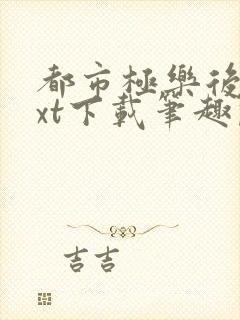 都市極樂後
xt下載筆趣
吉吉